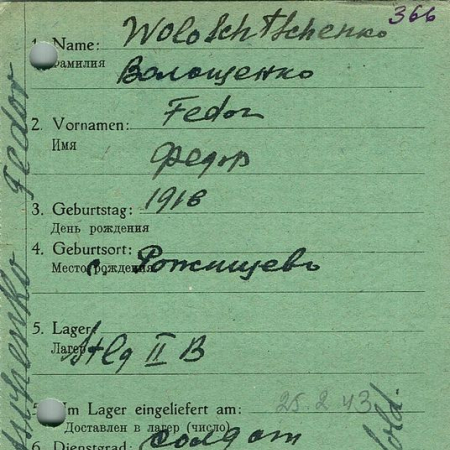 366
1. Name: Woloschtschenko
Фамилия Волощенко
2. Vornamen: Fedor
Имя Федор
3. Geburtstag: 1916
День рождения
4. Geburtsort:
Место рождения с. Рожищевъ
5. Lager:
Лагерь Stlg II B
Im Lager eingeliefert am: 25.2.43
Доставлен в лагерь (число)
6. Dienstgrad: солдат
Fedor